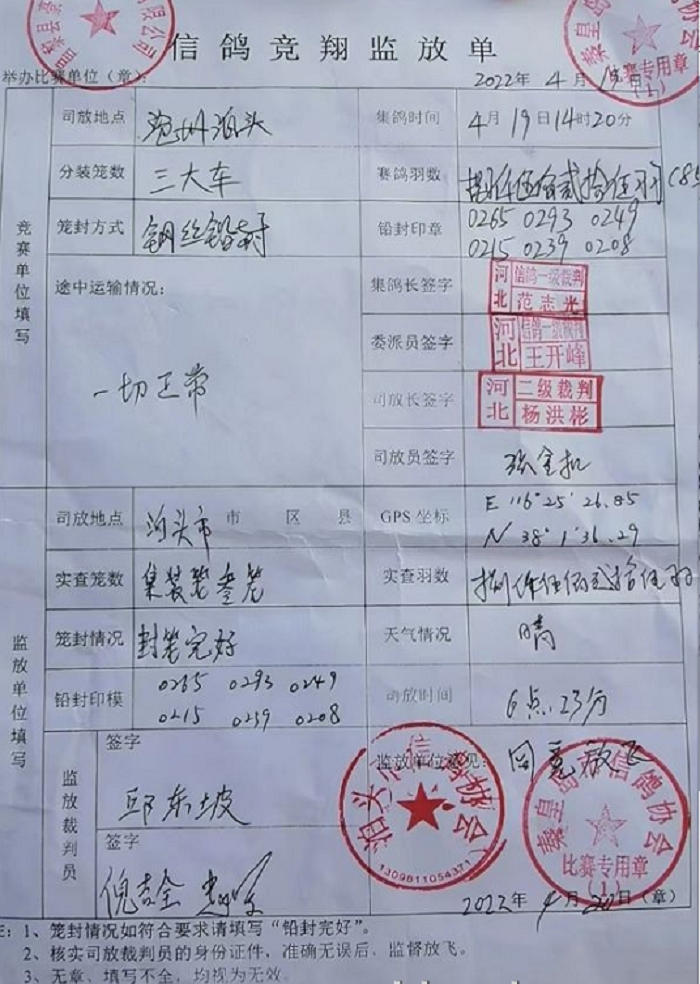 信鸽竞翔监放单
举办比赛单位（章）：
2022年 4月19日
秦皇岛市信鸽协会
比赛专用章
（1）
竞赛单位填写
司放地点 沧州泊头 集鸽时间 4月19日14时20分
分装笼数 三大车 赛鸽羽数 捌仟伍佰贰拾伍羽
笼封方式 钢丝铅封 铅封印章 0265 0293 0249
0215 0239 0208
途中运输情况：
一切正常
集鸽长签字 河北 信鸽一级裁判 范志光
委派员签字 河北 信鸽一级裁判 王开峰
司放长签字 河北 二级裁判 杨洪彬
司放员签字
监放单位填写
司放地点 泊头市 市 区 县 GPS 坐标 E 116° 25' 26.85
N 38° 1' 36.29
实查笼数 集装笼叁笼 实查羽数 捌仟伍佰贰拾伍羽
笼封情况 封笼完好 天气情况 晴
铅封印模 0265 0293 0249
0215 0239 0208
司放时间 6点23分
监放裁判员
签字
邱东坡
签字
倪吉全
监放单位意见： 同意放飞
泊头市信鸽协会
1309811054371
秦皇岛市信鸽协会
比赛专用章
（1）
2022年 4月20日（章）
注：1、笼封情况如符合要求请填写“铅封完好”。
2、核实司放裁判员的身份证件，准确无误后，监督放飞。
3、无章、填写不全，均视为无效。